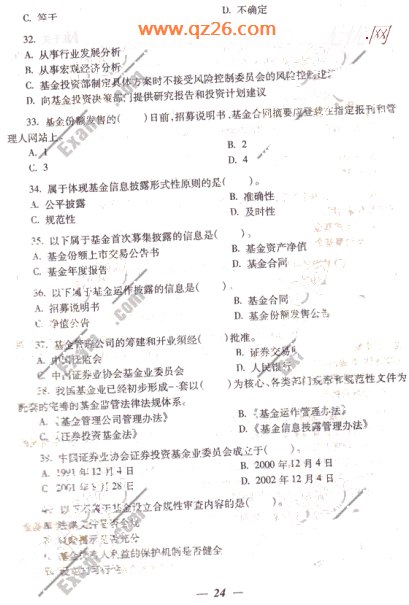 www.qz26.com
C. 等于 D. 不确定
32.
A. 从事行业发展分析
B. 从事宏观经济分析
C. 基金投资部制定具体方案时不接受风险控制委员会的风险控制建议
D. 向基金投资决策部门提供研究报告和投资计划建议
33. 基金份额发售的( )日前,招募说明书、基金合同摘要应登载在指定报刊和管
理人网站上。
A. 1 B. 2
C. 3 D. 4
34. 属于体现基金信息披露形式性原则的是( )。
A. 公平披露 B. 准确性
C. 规范性 D. 及时性
35. 以下属于基金首次募集披露的信息是( )。
A. 基金份额上市交易公告书 B. 基金资产净值
C. 基金年度报告 D. 基金合同
36. 以下属于基金运作披露的信息是( )。
A. 招募说明书 B. 基金合同
C. 净值公告 D. 基金份额发售公告
37. 基金管理公司的筹建和开业须经( )批准。
A. 中国证监会 B. 证券交易
C. 中国证券业协会基金业委员会 D. 人民银行
38. 我国基金业已经初步形成一套以( )为核心、各类部门规章和规范性文件为
配套的完善的基金监管法律法规体系。
A. 《基金管理公司管理办法》 B. 《基金运作管理办法》
C. 《证券投资基金法》 D. 《基金信息披露管理办法》
39. 中国证券业协会证券投资基金业委员会成立于( )。
A. 1991年12月4日 B. 2000年12月4日
C. 2001年8月28日 D. 2002年12月4日
40. 以下不属于基金设立合规性审查内容的是( )。
法律文件是否合规
是否充分
基金持有人利益的保护机制是否健全
— 24 —